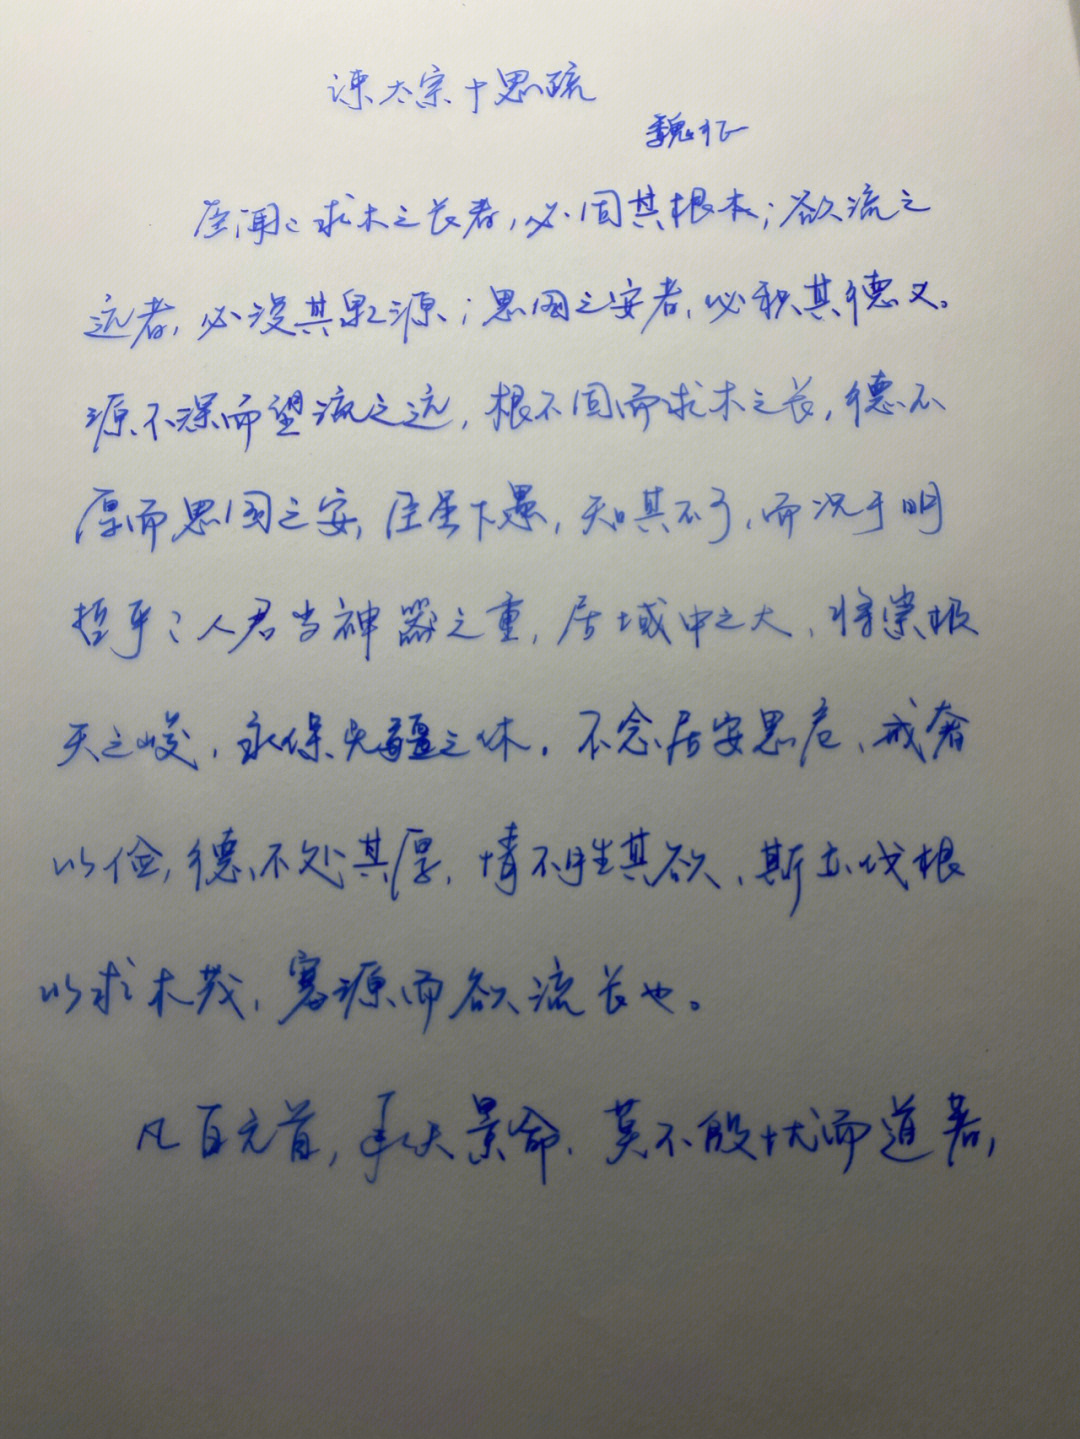 谏太宗十思疏
魏征
臣闻：求木之长者，必固其根本；欲流之
远者，必浚其泉源；思国之安者，必积其德义。
源不深而望流之远，根不固而求木之长，德不
厚而思国之安，臣虽下愚，知其不可，而况于明
哲乎？人君当神器之重，居域中之大，将崇极
天之峻，永保无疆之休。不念居安思危，戒奢
以俭，德不处其厚，情不胜其欲，斯亦伐根
以求木茂，塞源而欲流长也。
凡百元首，承天景命，莫不殷忧而道著，